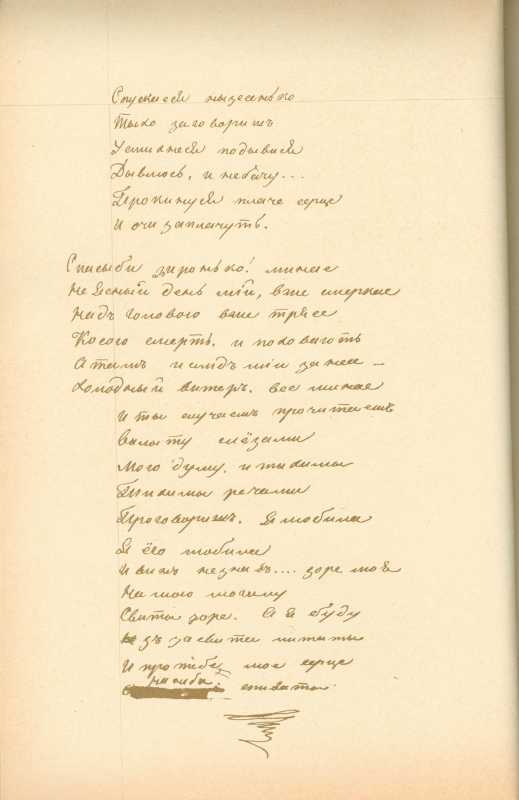 Спускаеся нызесенько
Тыхо заговорышъ
Усмихнеся подывися
Дывлюсь, и небачу...
Прокинуся плаче серце
И очи заплачуть.
Спасыби зиронько! минае
Неясный день мій, вже смеркае
Надъ головою вже трясе
Косою смерть. и поховають
А тамъ и слидъ мій занесе
Холодный витеръ. все минае
И ты случаемъ прочитаешъ
слёзами
Мою думу. и тыхимы
Тыхимы речамы
Проговоришъ. Я любила
Я ёго любила
И винъ незнавъ.... зоре моя
На мою могилу
Свиты зоре. А я буду
зъ засвита литаты
И про тебе, мое серце
спиваты.